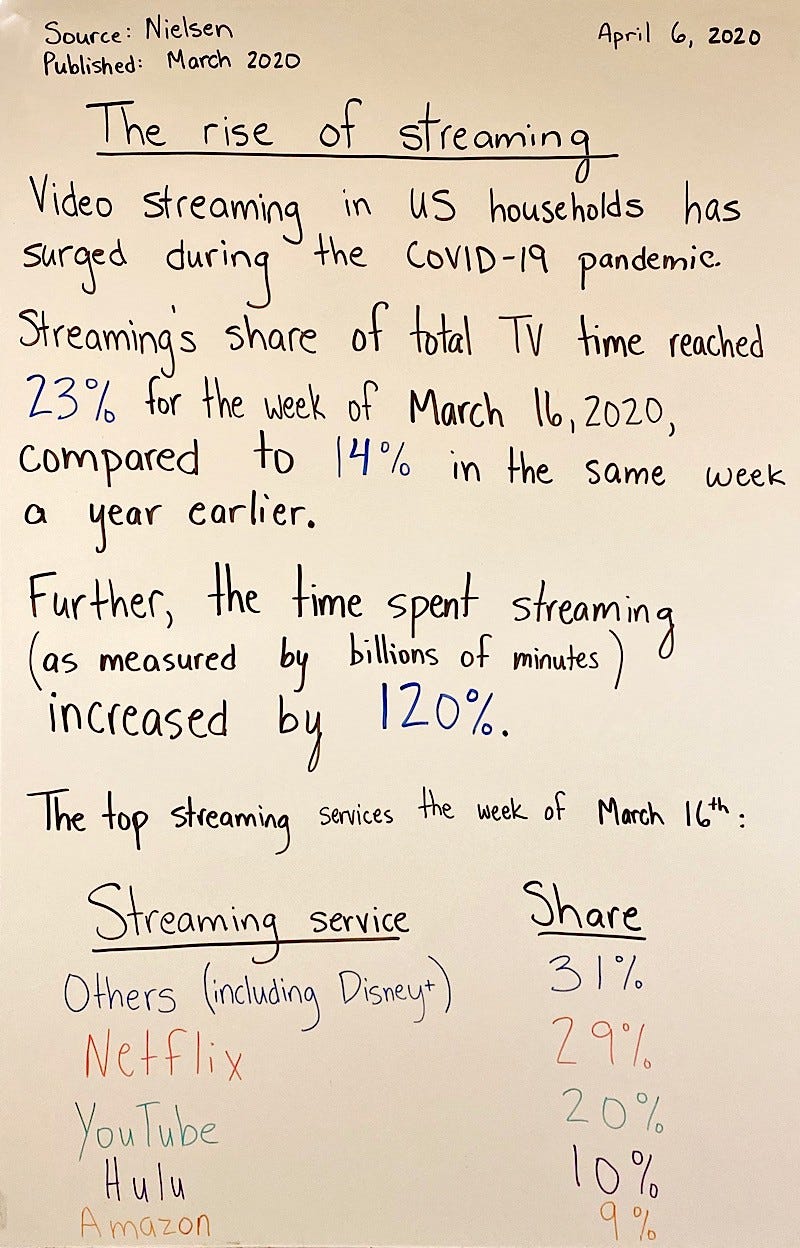 Source: Nielsen
April 6, 2020
Published: March 2020
The rise of streaming
Video streaming in US households has
surged during the COVID-19 pandemic.
Streaming's share of total TV time reached
23% for the week of March 16, 2020,
compared to 14% in the same week
a year earlier.
Further, the time spent streaming
(as measured by billions of minutes)
increased by 120%.
The top streaming services the week of March 16th:
Streaming service Share
Others (including Disney+) 31%
Netflix 29%
YouTube 20%
Hulu 10%
Amazon 9%